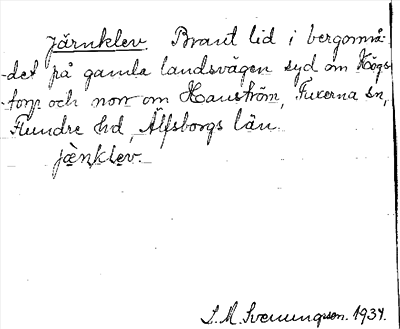 Järnklev. Brant lid i bergområ-
det på gamla landsvägen syd om Högs-
torp och norr om Hanström, Fuxerna sn,
Flundre hd, Älfsborgs län.
jènklev.
S.M. Svenungsson. 1934.